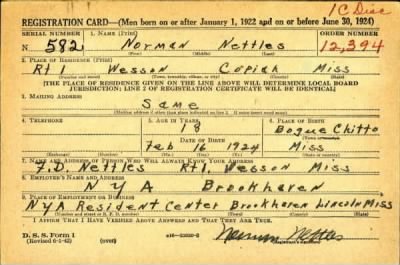 1C Disc
REGISTRATION CARD—(Men born on or after January 1, 1922 and on or before June 30, 1924)
SERIAL NUMBER 1. NAME (Print) ORDER NUMBER
N 582 Norman Nettles 12,394
(First) (Middle) (Last)
2. PLACE OF RESIDENCE (Print)
Rt 1 Wesson Copiah Miss
(Number and street) (Town, township, village, or city) (County) (State)
[THE PLACE OF RESIDENCE GIVEN ON THE LINE ABOVE WILL DETERMINE LOCAL BOARD
JURISDICTION; LINE 2 OF REGISTRATION CERTIFICATE WILL BE IDENTICAL]
3. MAILING ADDRESS
Same
[Mailing address if other than place indicated on line 2. If same insert word same]
4. TELEPHONE 5. AGE IN YEARS 6. PLACE OF BIRTH
18 Bogue Chitto
DATE OF BIRTH
Feb 16 1924 Miss
7. NAME AND ADDRESS OF PERSON WHO WILL ALWAYS KNOW YOUR ADDRESS
F.D. Nettles Rt 1, Wesson Miss
8. EMPLOYER'S NAME AND ADDRESS
NYA Brookhaven
9. PLACE OF EMPLOYMENT OR BUSINESS
NYA Resident Center Brookhaven Lincoln Miss
(Number and street or R. F. D. number) (Town) (County) (State)
I AFFIRM THAT I HAVE VERIFIED ABOVE ANSWERS AND THAT THEY ARE TRUE.
D. S. S. Form 1
(Revised 6-1-42) (over) Norman Nettles